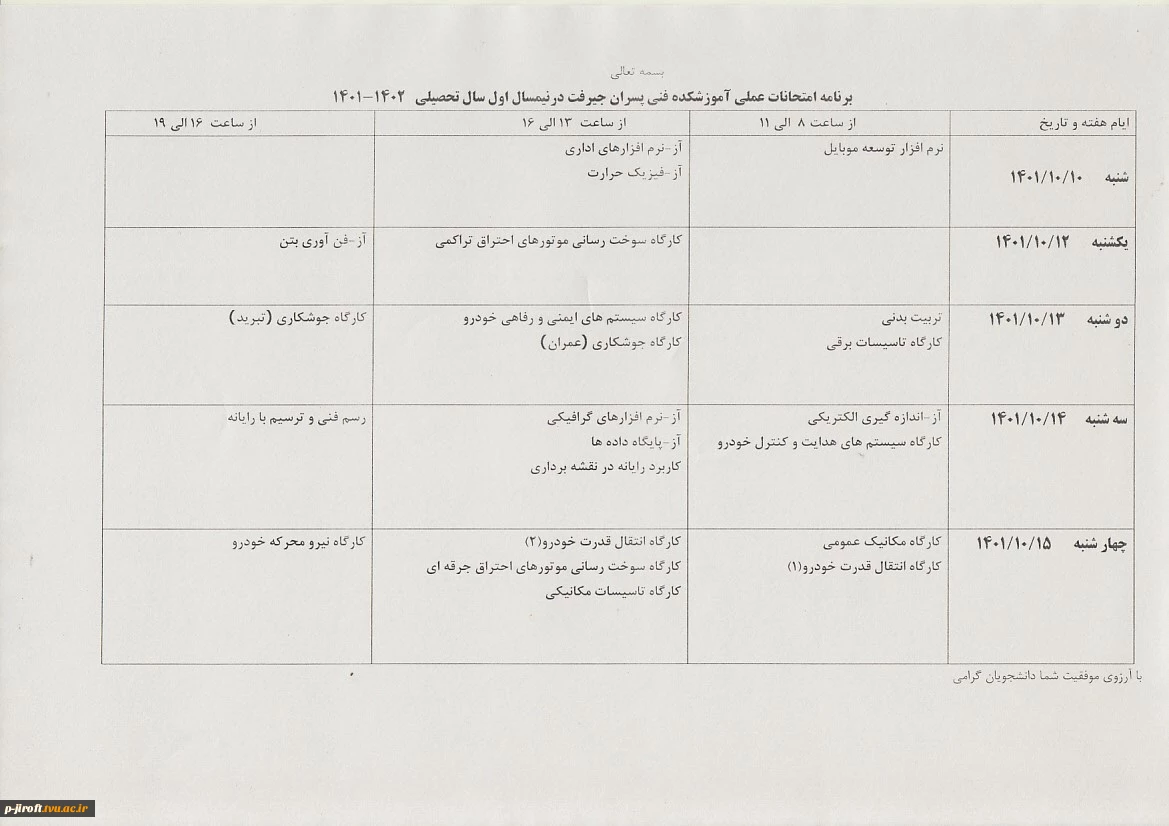 بسمه تعالی
برنامه امتحانات عملی آموزشکده فنی پسران جیرفت درنیمسال اول سال تحصیلی ۱۴۰۲-۱۴۰۱
ایام هفته و تاریخ
از ساعت ۸ الی ۱۱
از ساعت ۱۳ الی ۱۶
از ساعت ۱۶ الی ۱۹
شنبه ۱۴۰۱/۱۰/۱۰
نرم افزار توسعه موبایل
آز-نرم افزارهای اداری
آز-فیزیک حرارت
یکشنبه ۱۴۰۱/۱۰/۱۲
کارگاه سوخت رسانی موتورهای احتراق تراکمی
آز-فن آوری بتن
دو شنبه ۱۴۰۱/۱۰/۱۳
تربیت بدنی
کارگاه تاسیسات برقی
کارگاه سیستم های ایمنی و رفاهی خودرو
کارگاه جوشکاری (عمران)
کارگاه جوشکاری (تبرید)
سه شنبه ۱۴۰۱/۱۰/۱۴
آز-اندازه گیری الکتریکی
کارگاه سیستم های هدایت و کنترل خودرو
آز-نرم افزارهای گرافیکی
آز-پایگاه داده ها
کاربرد رایانه در نقشه برداری
رسم فنی و ترسیم با رایانه
چهار شنبه ۱۴۰۱/۱۰/۱۵
کارگاه مکانیک عمومی
کارگاه انتقال قدرت خودرو(۱)
کارگاه انتقال قدرت خودرو(۲)
کارگاه سوخت رسانی موتورهای احتراق جرقه ای
کارگاه تاسیسات مکانیکی
کارگاه نیرو محرکه خودرو
با آرزوی موفقیت شما دانشجویان گرامی
p-jiroft.tvu.ac.ir